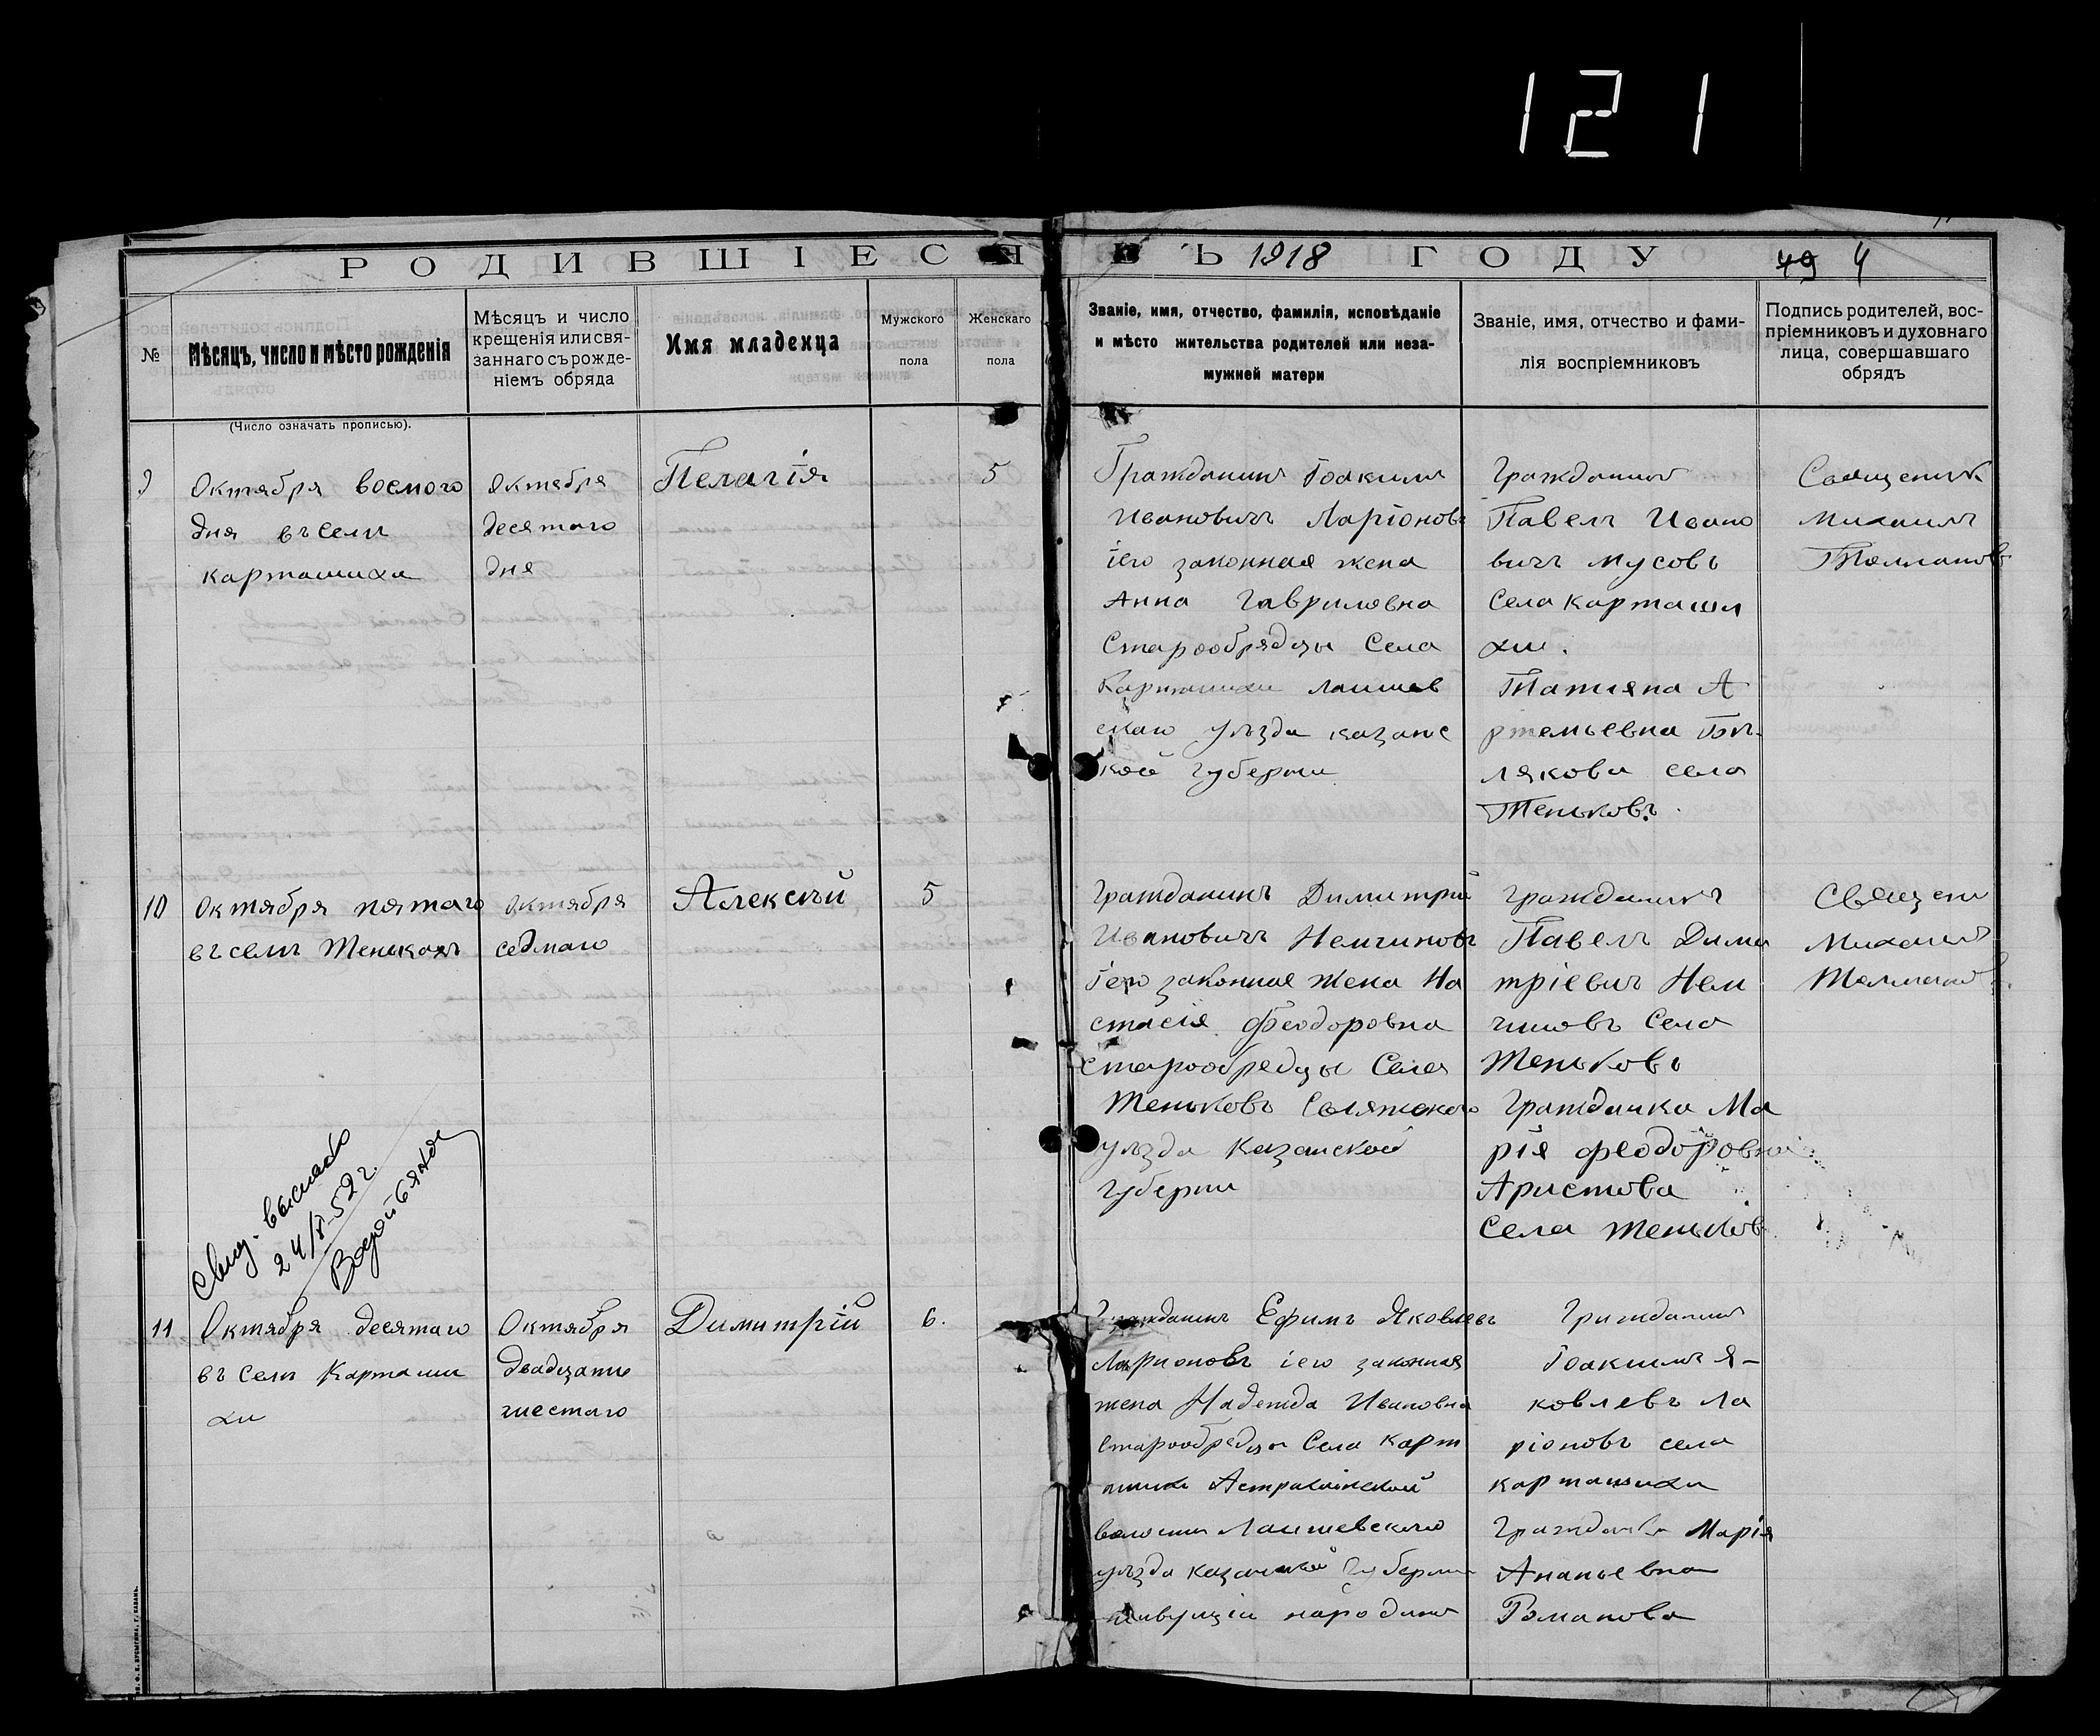 121
РОДИВШІЕСЯ ВЪ 1918 ГОДУ
49 4
№
Мѣсяцъ, число и мѣсто рожденія
Мѣсяцъ и число
крещенія или свя-
заннаго съ рожде-
ніемъ обряда
Имя младенца
Мужского
пола
Женскаго
пола
Званіе, имя, отчество, фамилія, исповѣданіе
и мѣсто жительства родителей или неза-
мужней матери
Званіе, имя, отчество и фами-
лія воспріемниковъ
Подпись родителей, вос-
пріемниковъ и духовнаго
лица, совершавшаго
обрядъ
(Число означать прописью).
9
Октября восмого
дня въ селѣ
карташихи
Октября
десятаго
дня
Пелагія
5
Гражданинъ Іоакимъ
Ивановичъ Ларіоновъ
іего законная жена
Анна Гавриловна
Старообрядцы Села
Карташихи лаишев
скаго уѣзда казанс
кой губерни
Гражданинъ
Павелъ Ивано
вичъ Мусовъ
Села карташи
хи.
Татияна А
ртемьевна
лякова села
Теньковъ.
Священик
Михаилъ
10
Октября пятаго
въ селѣ Тенькахъ
октября
седмаго
Алексѣй
5
Гражданинъ Димитрій
Ивановичъ Немчиновъ
Іего законная жена На
стасія феодоровна
старообредцы Села
Теньковъ Свляжского
уѣзда Казанской
губерни
Гражданинъ
Павелъ Дими
тріевич Нем
чиновъ Села
Теньковъ
Гражданка Ма
рія феодоровна
Аристова
Села Теньков
Священи
Михаилъ
Свид. выслано
24/X-52 г.
11
Октября десятаго
въ Селѣ Карташи
хи
Октября
двадцать
шестаго
Димитрій
6.
Гражданинъ Ефимъ Яковлевъ
Ларионовъ іего законная
жена Надежда Ивановна
Старообредцы Села Карт
ашихи
волости Лаишевского
уѣзда казанской Губерни
Гражданинъ
Іоакимъ Я-
ковлевъ Ла
ріоновъ села
карташихи
Гражданка Марія
Ананьевна
Романова